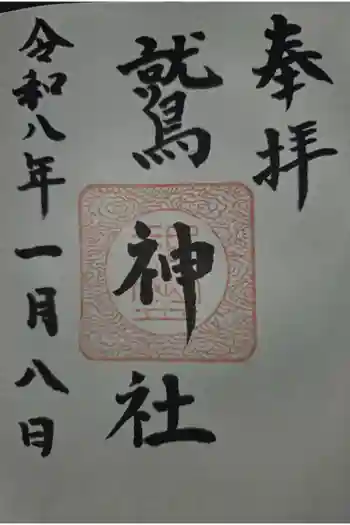 奉拝
鷲神社
令和八年一月八日